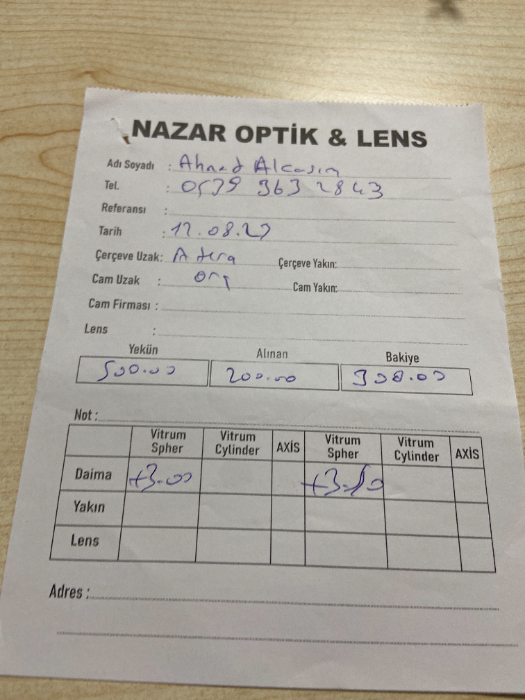 NAZAR OPTİK & LENS
Adı Soyadı : Ahmed Alcasım
Tel. : 0539 363 2843
Referansı :
Tarih : 12.08.22
Çerçeve Uzak: Çerçeve Yakın:
Cam Uzak : org Cam Yakın:
Cam Firması :
Lens :
Yekün Alınan Bakiye
500.00 200.00 300.00
Not :
Vitrum Spher Vitrum Cylinder AXİS Vitrum Spher Vitrum Cylinder AXİS
Daima +3.00 +3.50
Yakın
Lens
Adres :